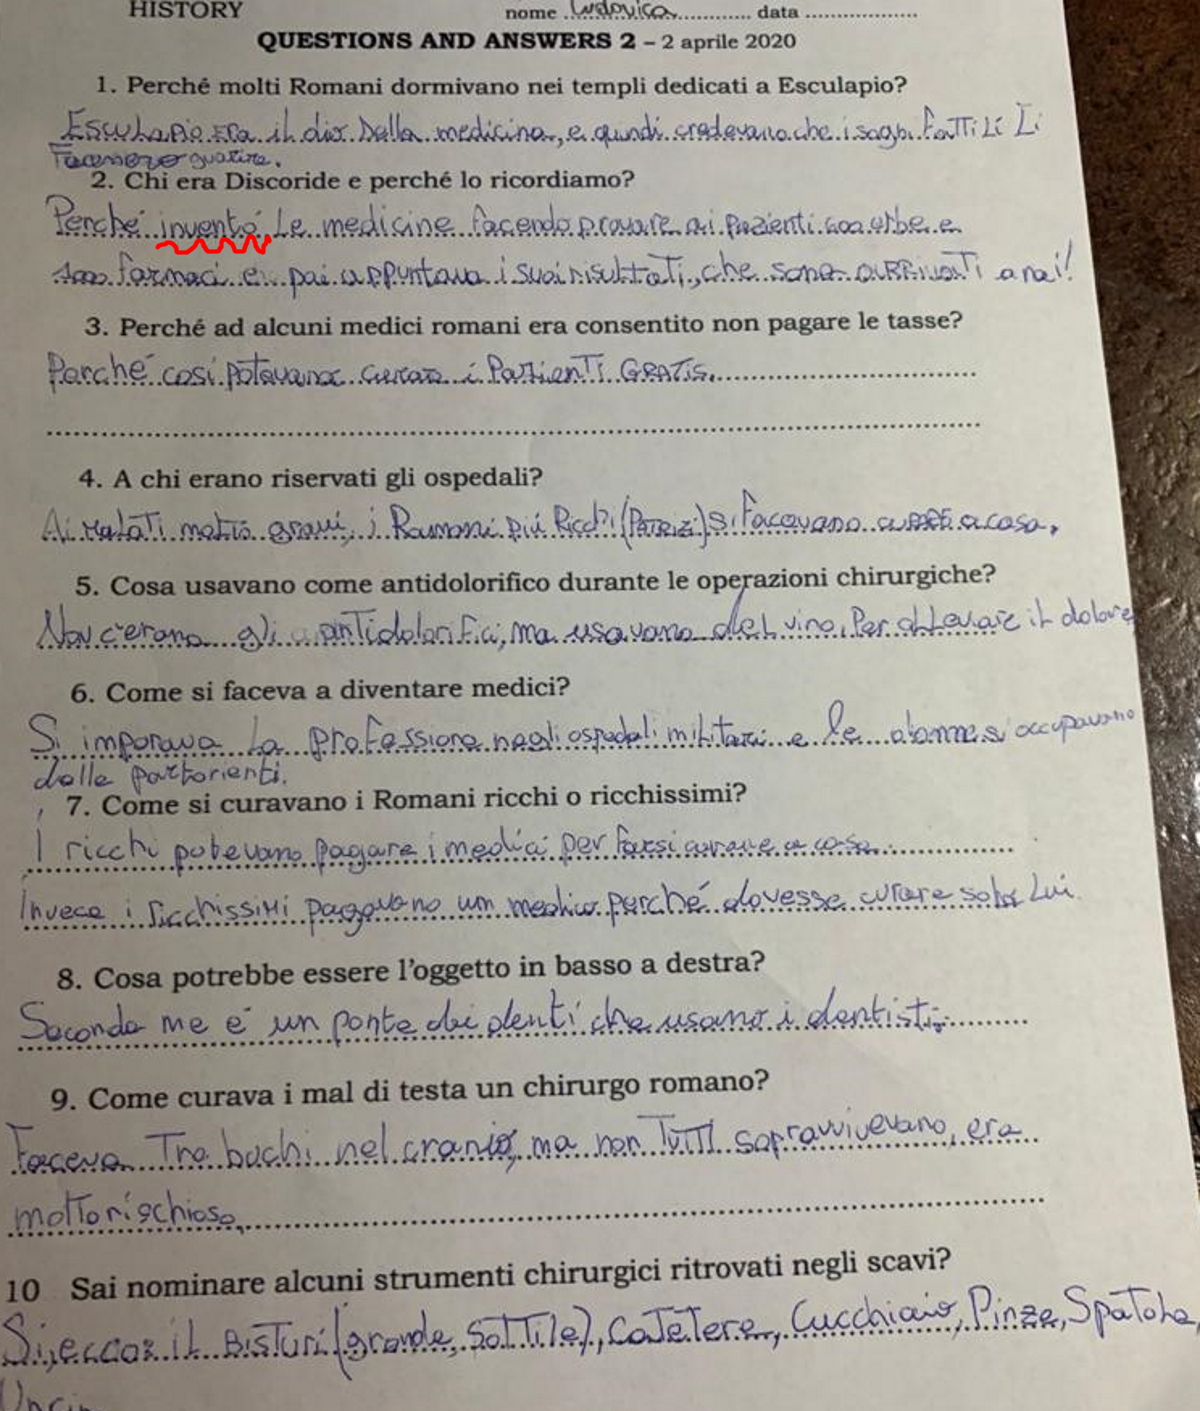 HISTORY nome Ludovica data
QUESTIONS AND ANSWERS 2 – 2 aprile 2020
1. Perché molti Romani dormivano nei templi dedicati a Esculapio?
Esculapio era il dio della medicina, e quindi credevano che i sogni fatti lì li
facessero guarire.
2. Chi era Discoride e perché lo ricordiamo?
Perché inventó le medicine facendo provare ai pazienti 600 erbe e
farmaci e poi appuntava i suoi risultati, che sono arrivati a noi!
3. Perché ad alcuni medici romani era consentito non pagare le tasse?
Perché cosí potevano curare i pazienti GRATIS.
4. A chi erano riservati gli ospedali?
Ai malati molto gravi, i Romani piú Ricchi (PATRIZI) si facevano curare a casa.
5. Cosa usavano come antidolorifico durante le operazioni chirurgiche?
Non c'erano gli antidolorifici, ma usavano del vino per alleviare il dolore
6. Come si faceva a diventare medici?
Si imparava la professione negli ospedali militari e le donne si occupavano
delle partorienti.
7. Come si curavano i Romani ricchi o ricchissimi?
I ricchi potevano pagare i medici per farsi curare a casa.
Invece i ricchissimi pagavano un medico perché dovesse curare solo lui.
8. Cosa potrebbe essere l'oggetto in basso a destra?
Secondo me é un ponte dei denti che usano i dentisti.
9. Come curava i mal di testa un chirurgo romano?
Faceva Tre buchi nel cranio, ma non TUTTI sopravvivevano, era
molto rischioso.
10 Sai nominare alcuni strumenti chirurgici ritrovati negli scavi?
Si, eccoz il BISTURI (grande, SOTTILE), CATETERE, Cucchiaio, Pinze, Spatola,
Uncin